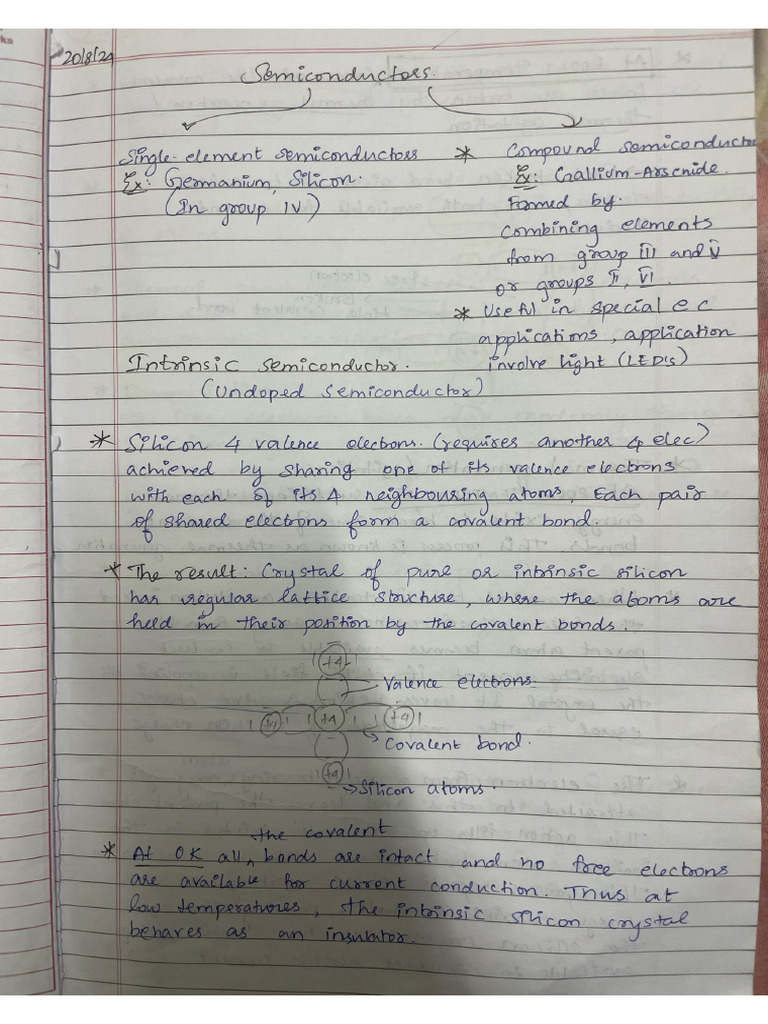 20/8/24
Semiconductors.
Single-element semiconductors
Ex: Germanium, Silicon.
(In group IV)
* Compound semiconductor
Ex: Gallium-Arsenide.
Formed by.
combining elements
from group III and V
or groups II, VI.
* Useful in special e c
applications, application
involve light (LED's)
Intrinsic semiconductor.
(Undoped semiconductor)
* Silicon 4 valence electrons. (requires another 4 elec)
achieved by sharing one of its valence electrons
with each of its 4 neighbouring atoms, Each pair
of shared electrons form a covalent bond.
* The result: Crystal of pure or intrinsic silicon
has regular lattice structure, where the atoms are
held in their position by the covalent bonds.
+4
Valence electrons.
+4 +4 +4
Covalent bond.
+4
Silicon atoms.
the covalent
* At 0K all, bonds are intact and no free electrons
are available for current conduction. Thus at
low temperatures, the intrinsic silicon crystal
behaves as an insulator.